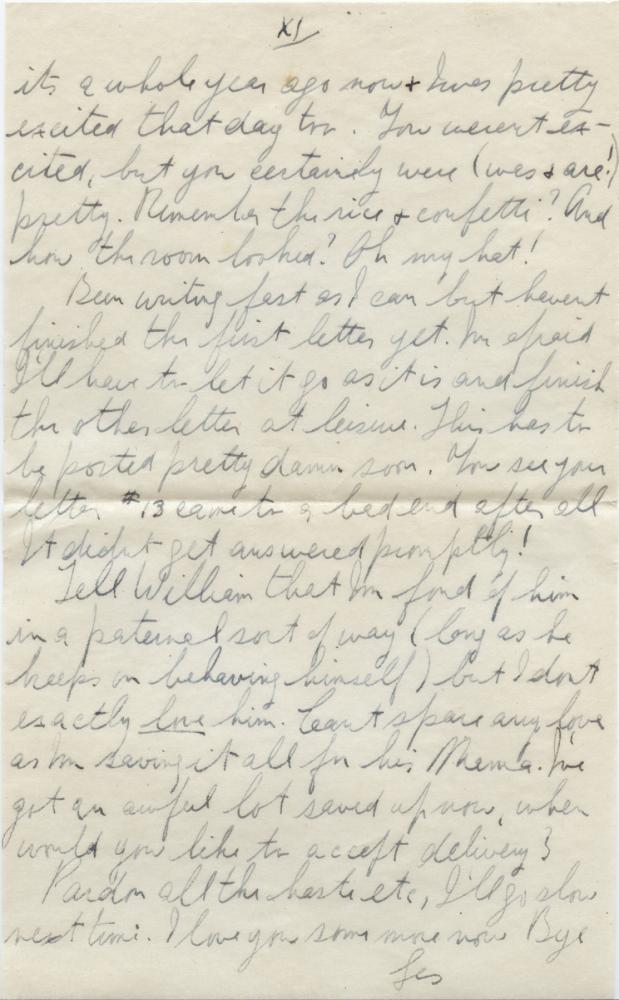 XI
its a whole year ago now + I was pretty
excited that day too. You werent ex-
cited, but you certainly were (was & are!)
pretty. Remember the rice & confetti? And
how the room looked? Oh my hat!
Been writing fast as I can but havent
finished the first letter yet. Im afraid
I'll have to let it go as it is and finish
the other letter at leisure. This has to
be posted pretty damn soon. You see your
letter #13 came to a bad end after all
It didnt get answered promptly!
Tell William that Im fond of him
in a paternal sort of way (long as he
keeps on behaving himself) but I dont
exactly love him. Cant spare any love
as Im saving it all for his Mama. I've
got an awful lot saved up now, when
would you like to accept delivery?
Pardon all the haste etc, I'll go slow
next time. I love you some more now Bye
Les